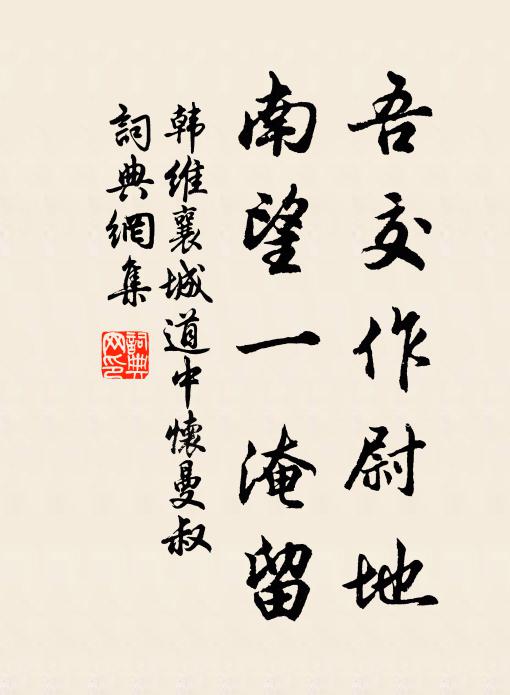 吾交作尉地
南望一淹留
韩维襄城道中懷曼叔
詞典網集
詞典网印